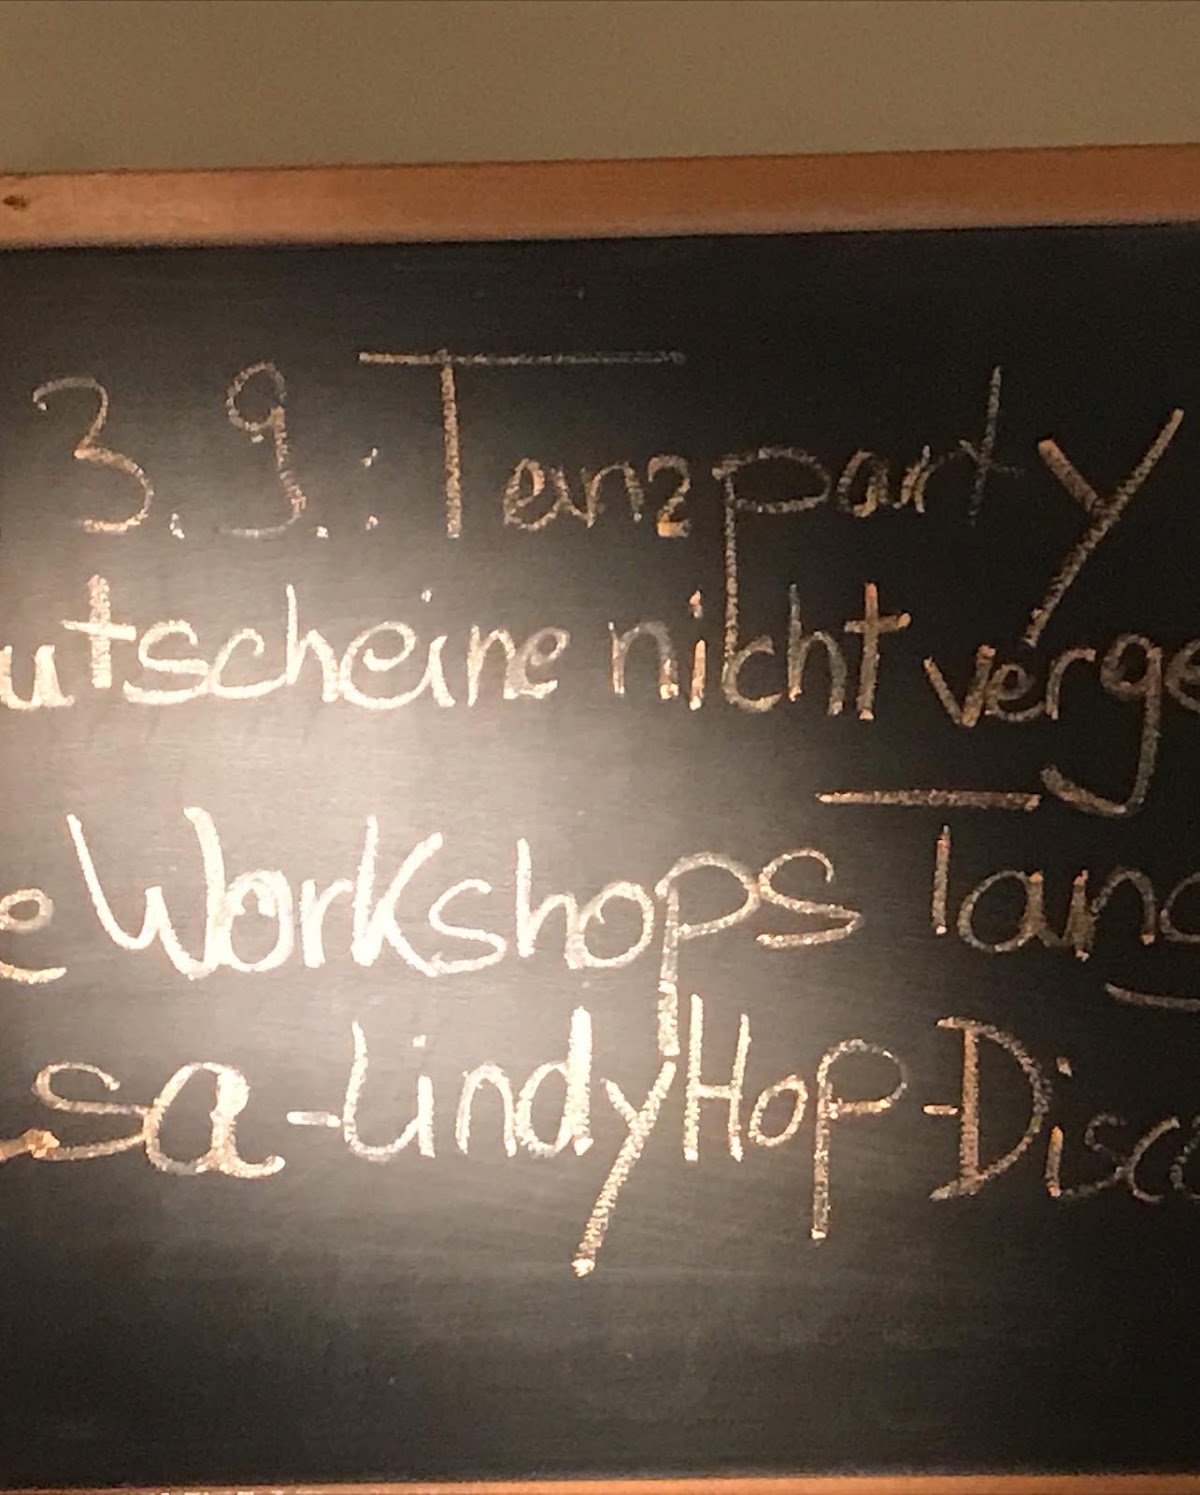 3.9.: Tanzparty
utscheine nicht verge
e Workshops Tang
sa-LindyHop-Disco